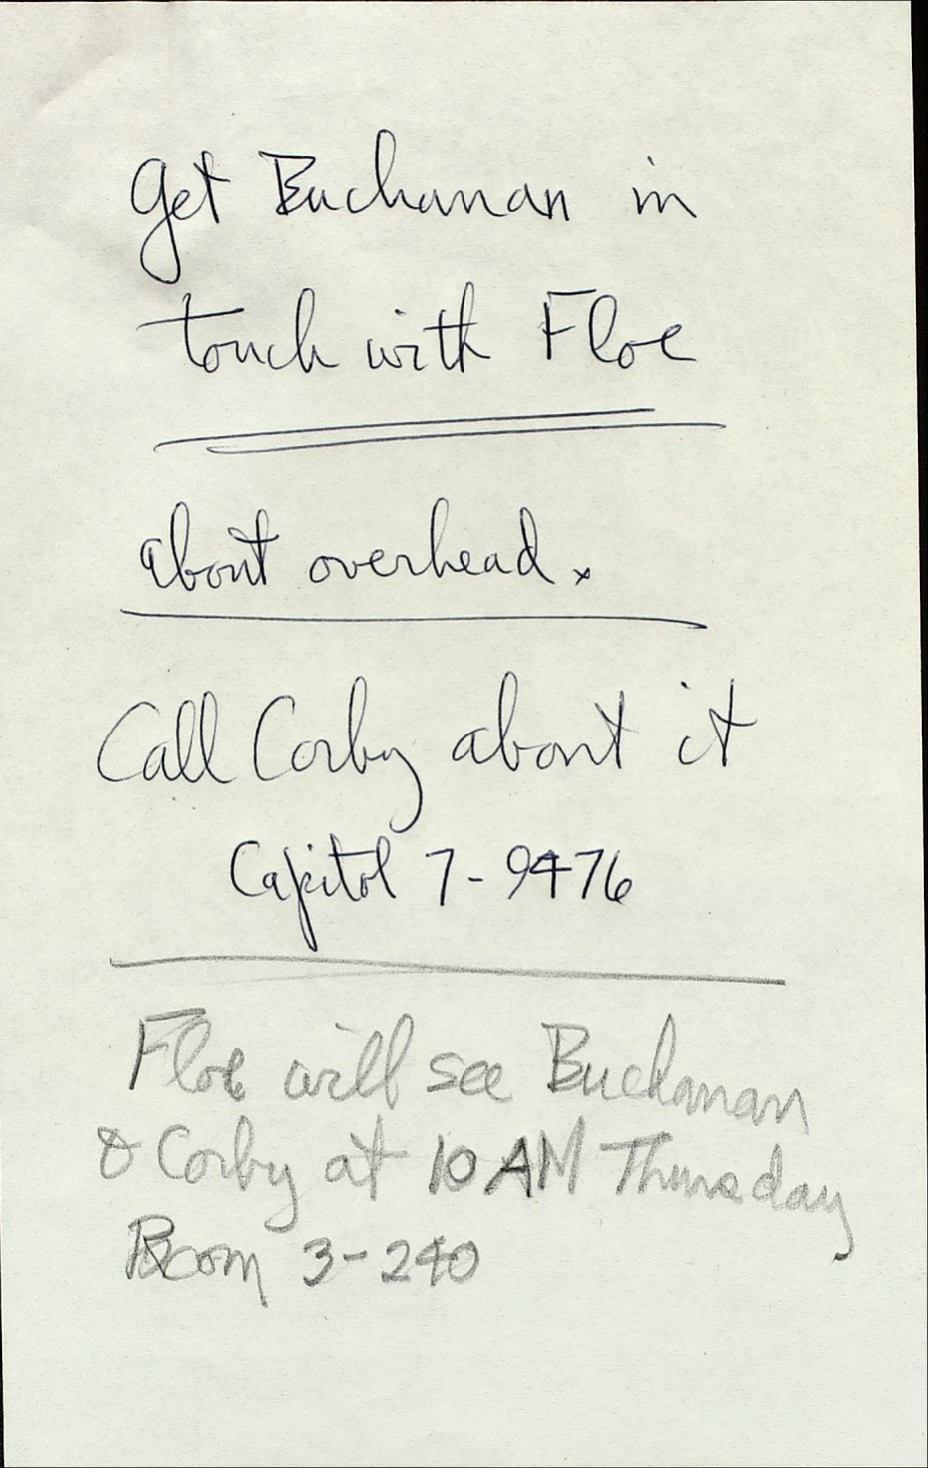 Get Buchanan in
touch with Floe
about overhead.
Call Corby about it
Capitol 7-9476
Floe will see Buchanan
& Corby at 10 AM Thursday
Room 3-240